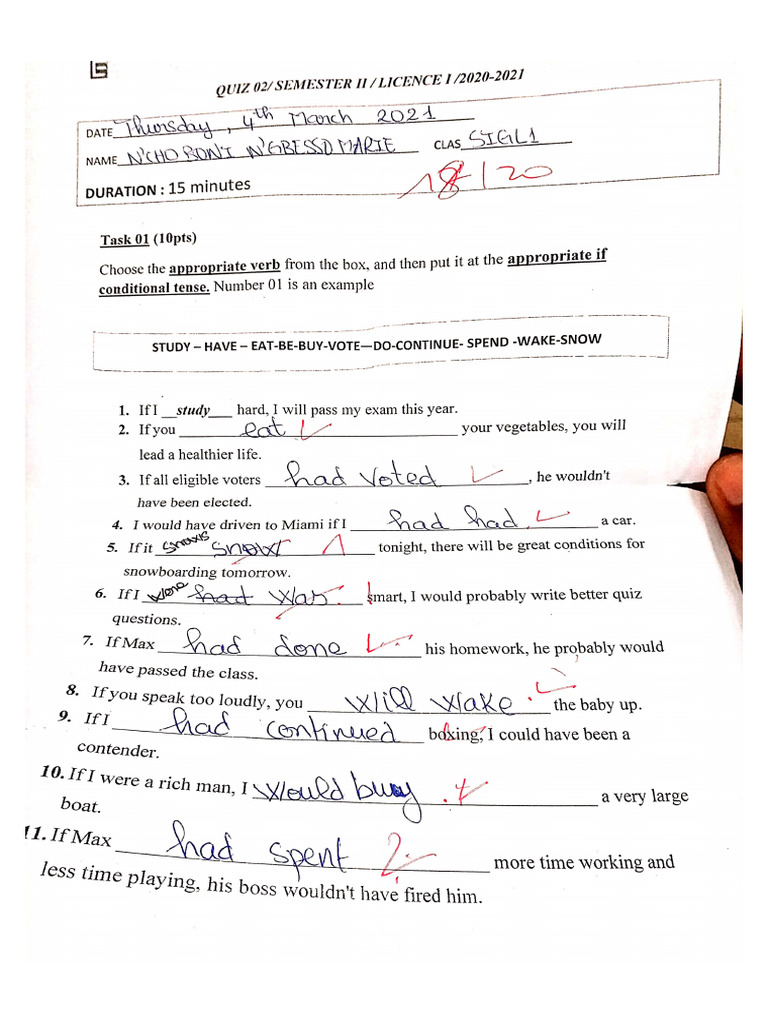 QUIZ 02/ SEMESTER II / LICENCE I /2020-2021
DATE Thursday, 4th March 2021
NAME N'CHO RONI N'GBESSO MARIE CLAS SIGL1
DURATION : 15 minutes
18/20
Task 01 (10pts)
Choose the appropriate verb from the box, and then put it at the appropriate if
conditional tense. Number 01 is an example
STUDY – HAVE – EAT-BE-BUY-VOTE—DO-CONTINUE- SPEND -WAKE-SNOW
1. If I __study___ hard, I will pass my exam this year.
2. If you eat your vegetables, you will
lead a healthier life.
3. If all eligible voters had voted, he wouldn't
have been elected.
4. I would have driven to Miami if I had had a car.
5. If it snows snow tonight, there will be great conditions for
snowboarding tomorrow.
6. If I were had was smart, I would probably write better quiz
questions.
7. If Max had done his homework, he probably would
have passed the class.
8. If you speak too loudly, you will wake the baby up.
9. If I had continued boxing, I could have been a
contender.
10. If I were a rich man, I would buy a very large
boat.
11. If Max had spent more time working and
less time playing, his boss wouldn't have fired him.